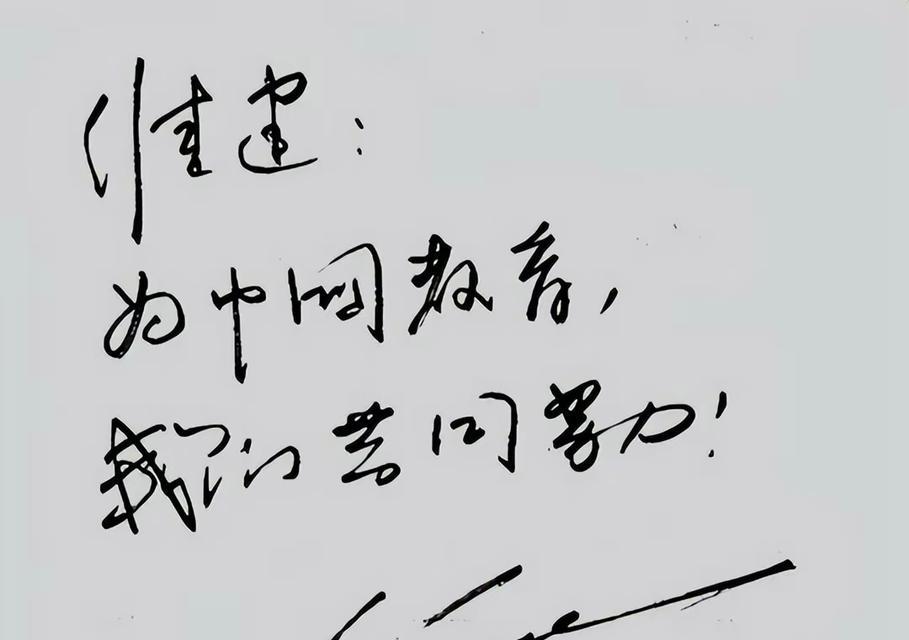 维建：
为中国教育，
我们共同努力！